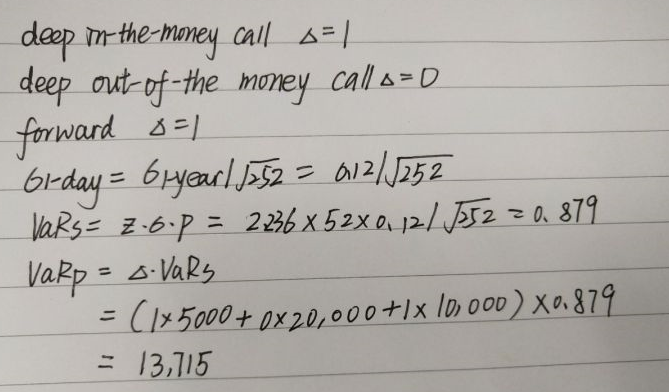 deep in-the-money call Δ=1
deep out-of-the money call Δ=0
forward Δ=1
σ1-day = σ1-year/√252 = 0.12/√252
VaRs = z·σ·P = 2.236×52×0.12/√252 = 0.879
VaRp = Δ·VaRs
= (1×5000+0×20,000+1×10,000)×0.879
= 13,715